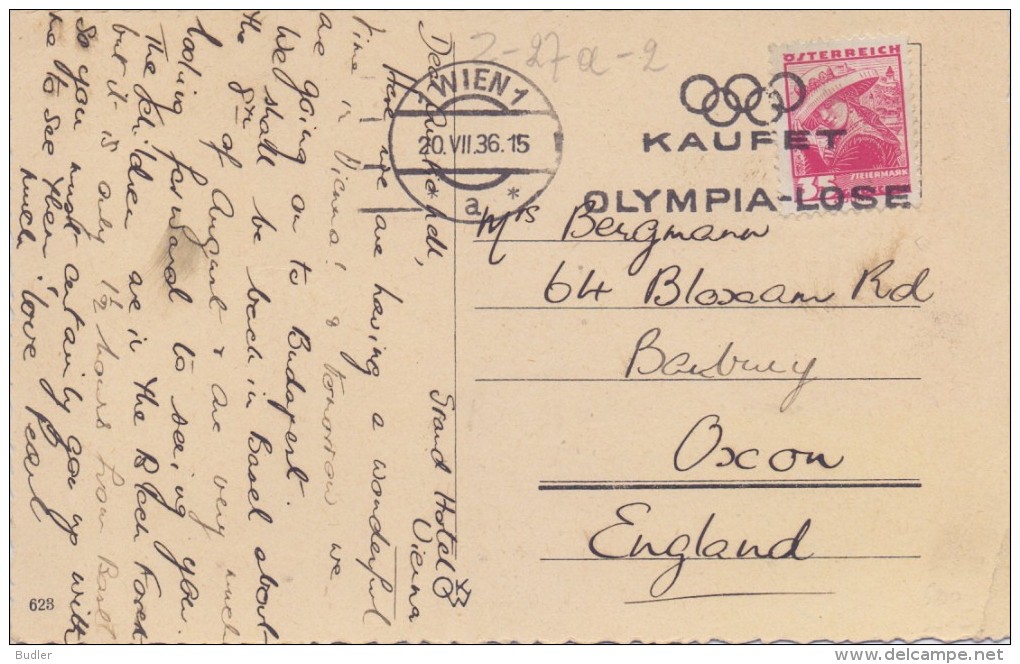 2-27a-2
WIEN 1
20.VII.36.15
* a *
KAUFET
OLYMPIA-LOSE
ÖSTERREICH
STEIERMARK
35
Grand Hotel
Vienna
Dear
Here we are having a wonderful
time in Vienna, & tomorrow we
are going on to Budapest.
We shall be back in Basel about
the 8th of August & are very much
looking forward to seeing you.
The children are in the Black Forest
but it is only 1½ hours from Basel
so you must certainly go up with
me to see them. Love
much. Pearl
Mrs Bergmann
64 Bloxam Rd
Banbury
Oxon
England
623
Budler
www.delcampe.net